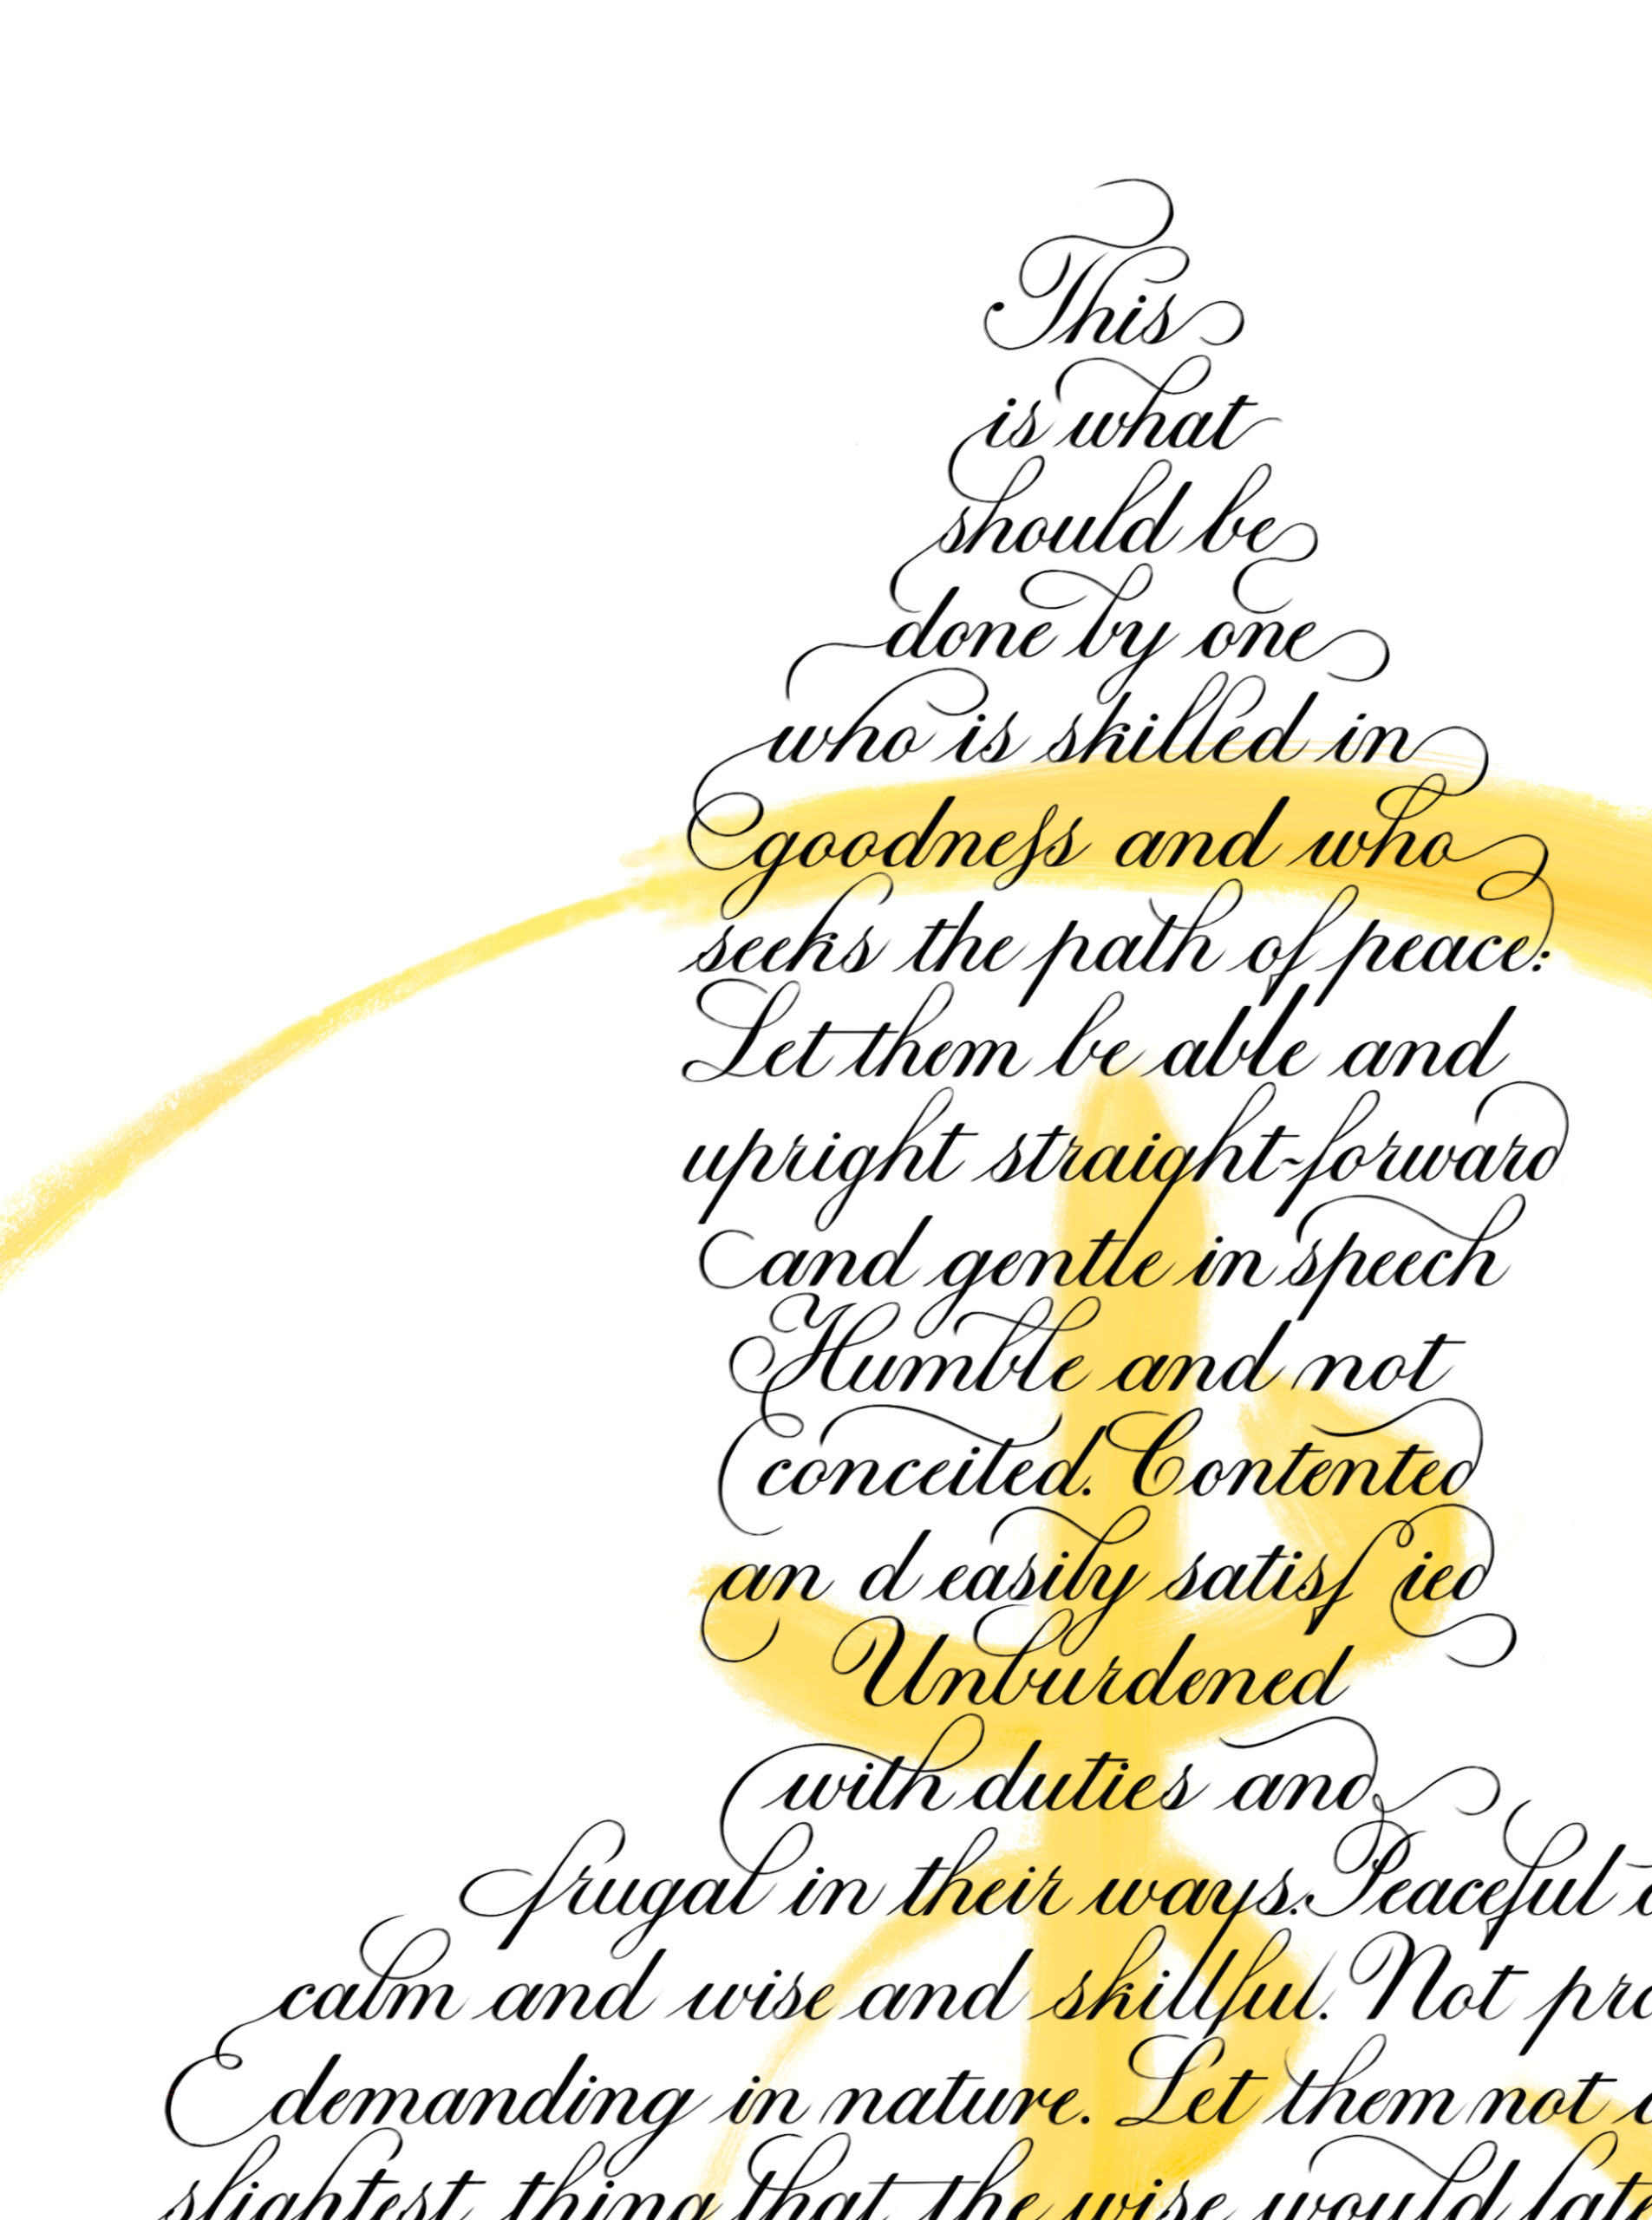 This
is what
should be
done by one
who is skilled in
goodness and who
seeks the path of peace:
Let them be able and
upright straight-forward
and gentle in speech
Humble and not
conceited. Contented
an d easily satisf ied
Unburdened
with duties and
frugal in their ways. Peaceful
calm and wise and skillful. Not
demanding in nature. Let them not
slightest thing that the wise would